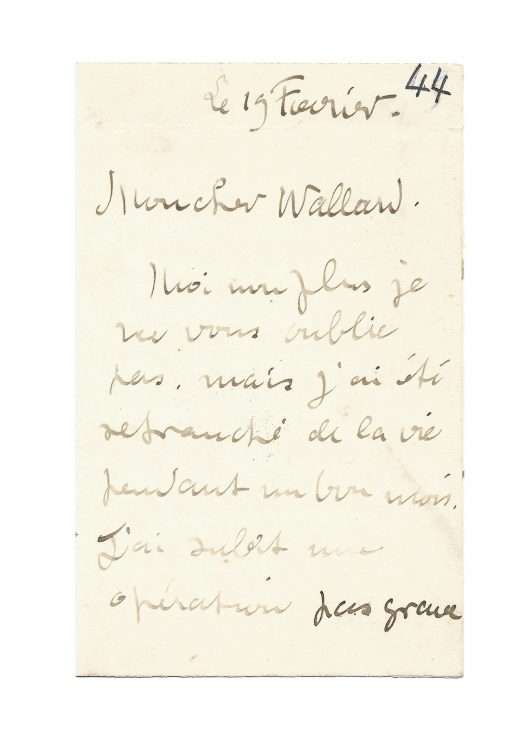 44
Le 19 Fevrier.
Mon cher Wallard.
Moi non plus je
ne vous oublie
pas. mais j'ai été
retranché de la vie
pendant un bon mois.
J'ai subit une
opération pas grave